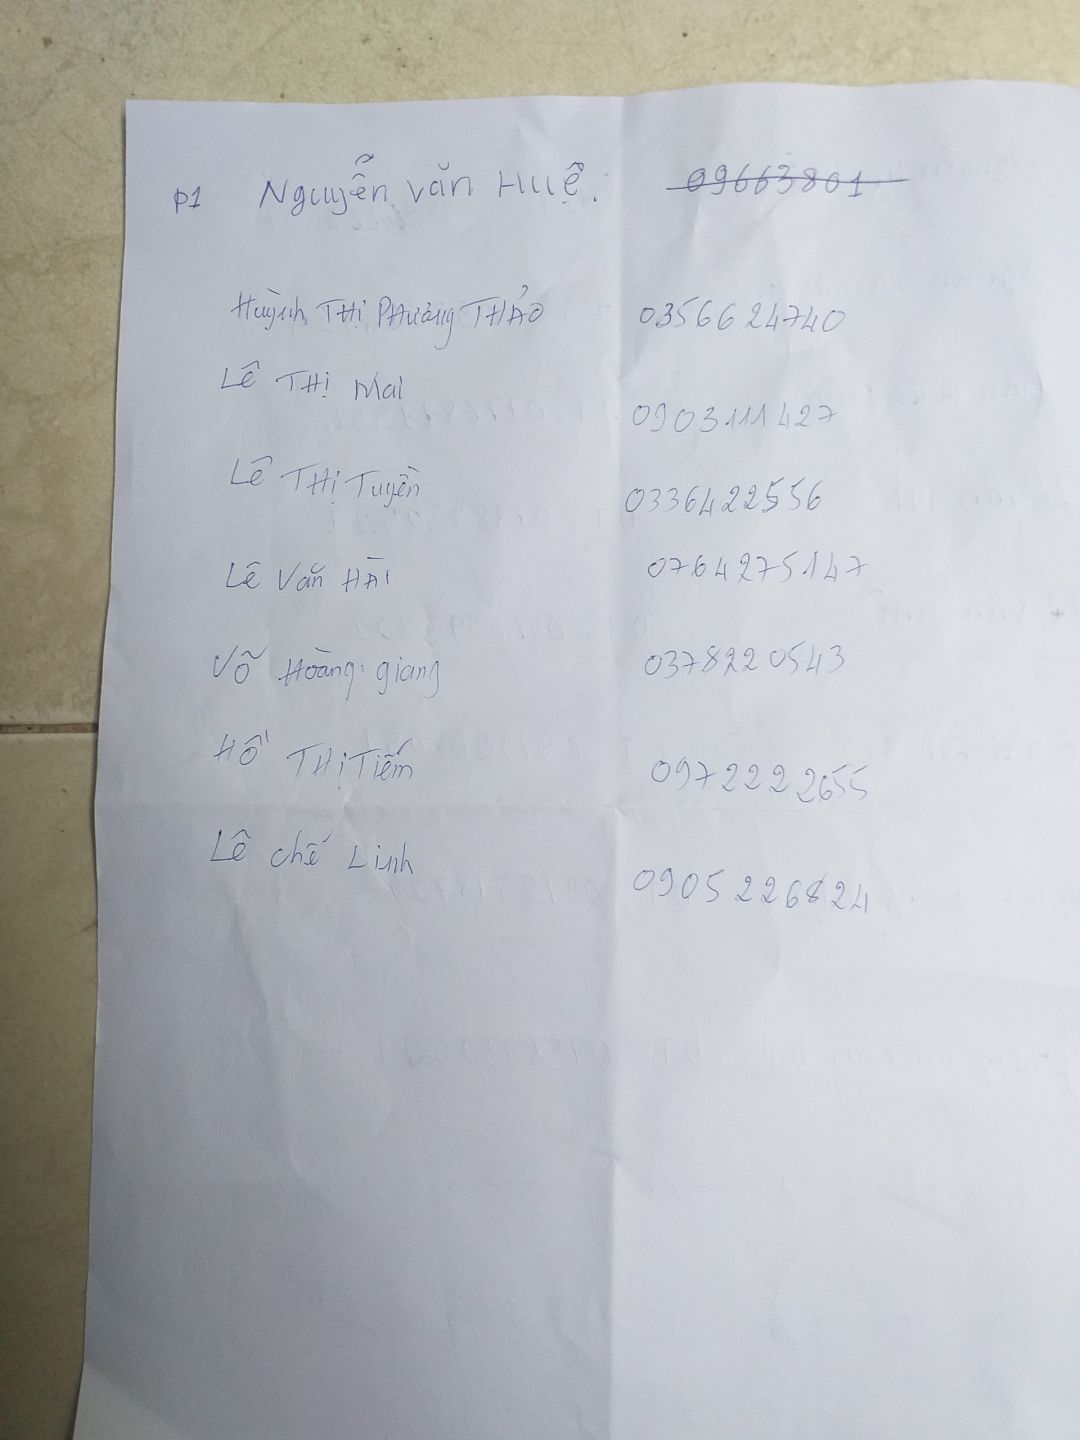 P1 Nguyễn Văn Huệ: 09663801
Huỳnh THị PHương THẢO 0356624740
LÊ THị Mai 0903111427
LÊ THị Tuyền 0336422556
LÊ Văn HẢI 0764275147
VÕ Hoàng giang 0378220543
HỒ THị Tiếm 0972222655
LÊ chế Linh 0905226824